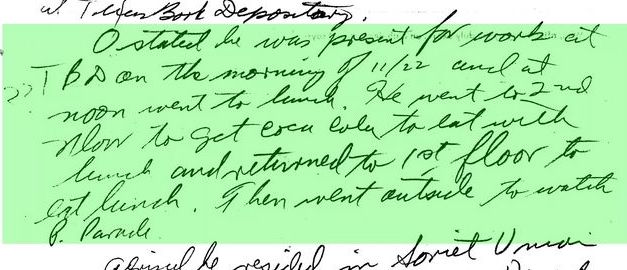 at Texas Book Depository.
O stated he was present for work at
TBD on the morning of 11/22 and at
noon went to lunch. He went to 2nd
floor to get coca cola to eat with
lunch and returned to 1st floor to
eat lunch. Then went outside to watch
P. Parade
advised he resided in Soviet Union